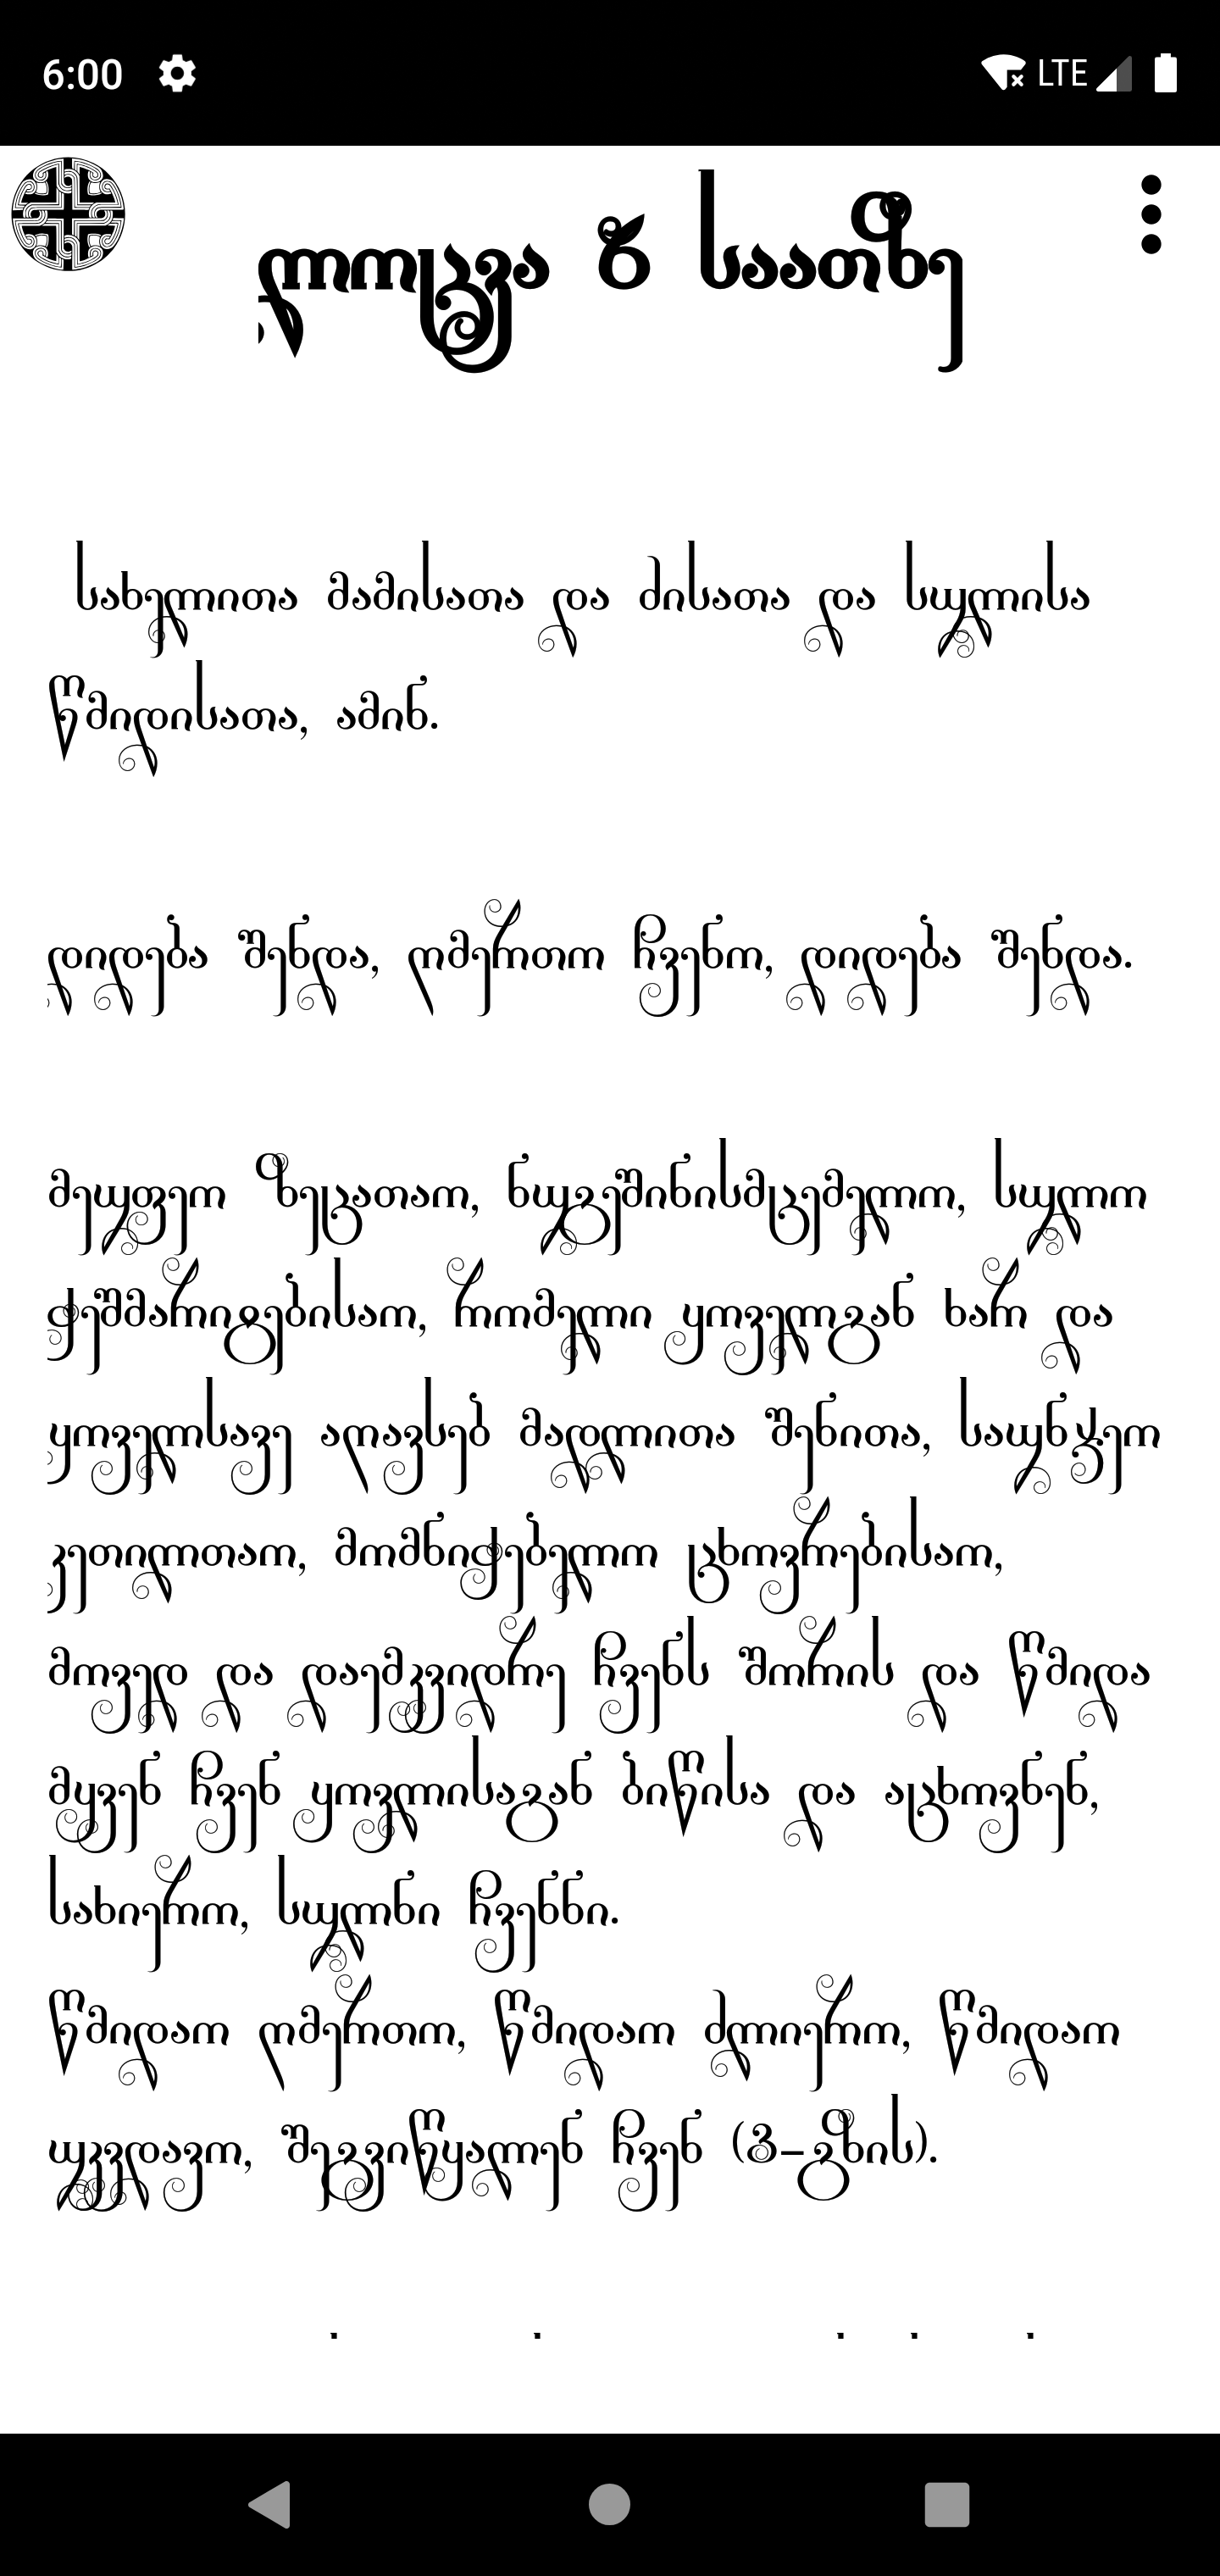 ლოცვა 8 საათზე
სახელითა მამისათა და ძისათა და სულისა
წმიდისათა, ამინ.
დიდება შენდა, ღმერთო ჩვენო, დიდება შენდა.
მეუფეო ზეცათაო, ნუგეშინისმცემელო, სულო
ჭეშმარიტებისაო, რომელი ყოველგან ხარ და
ყოველსავე აღავსებ მადლითა შენითა, საუნჯეო
კეთილთაო, მომნიჭებელო ცხოვრებისაო,
მოვედ და დაემკვიდრე ჩვენს შორის და წმიდა
მყვენ ჩვენ ყოვლისაგან ბიწისა და აცხოვნენ,
სახიერო, სულნი ჩვენნი.
წმიდაო ღმერთო, წმიდაო ძლიერო, წმიდაო
უკვდავო, შეგვიწყალენ ჩვენ (3-გზის).
6:00
LTE